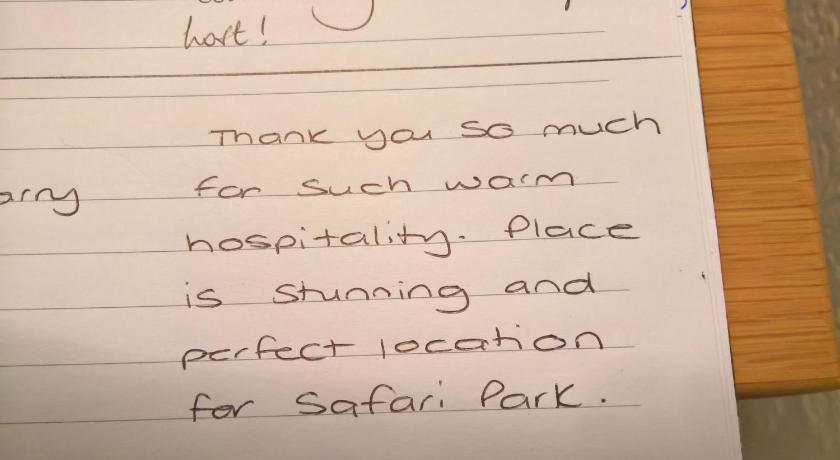 host!
Thank you so much
for such warm
arry
hospitality. Place
is stunning and
perfect location
for Safari Park.